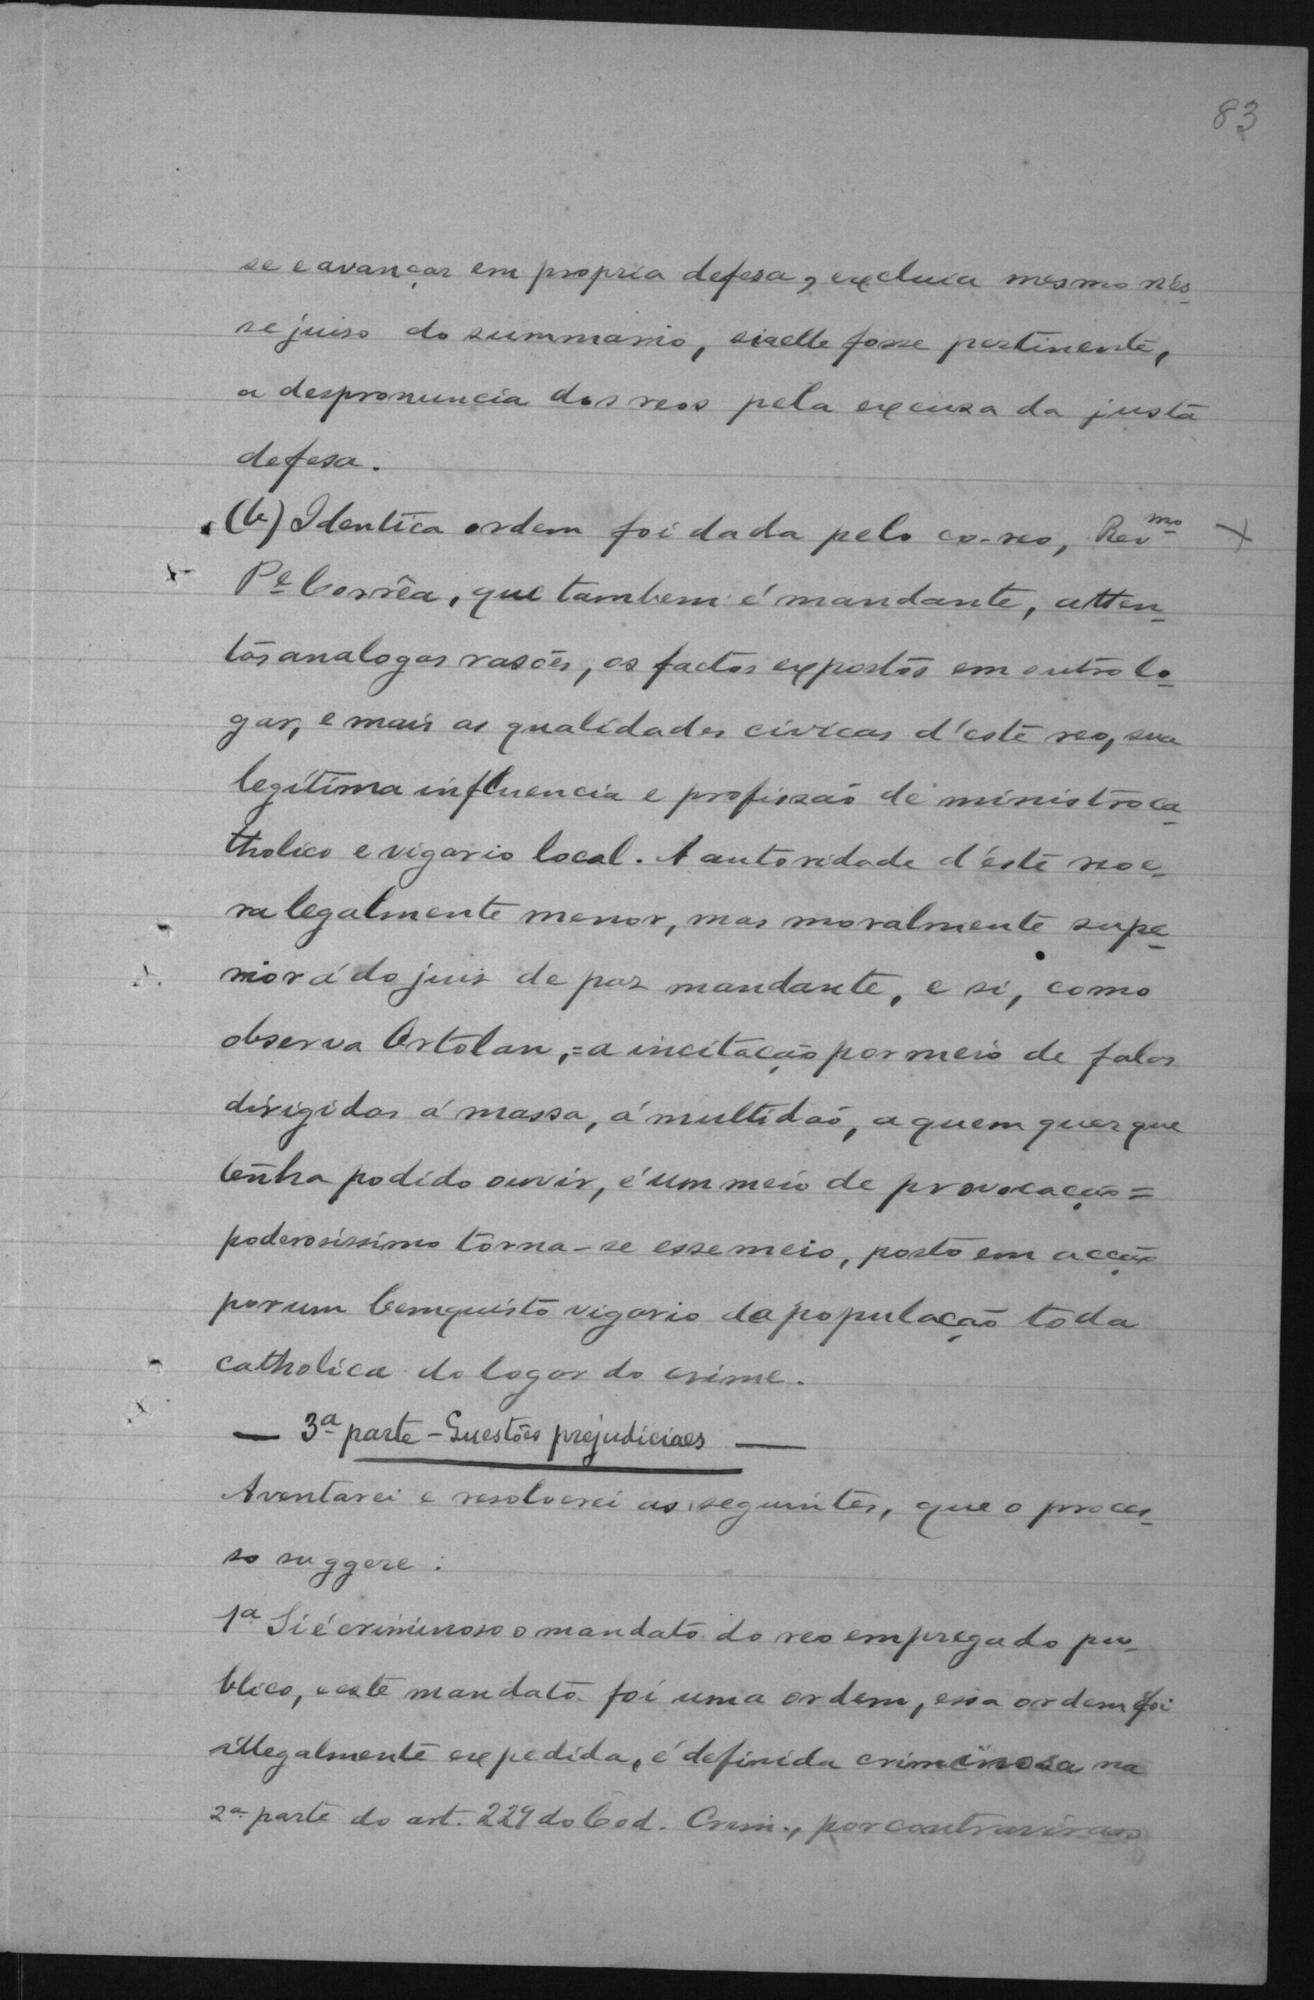 83
se e avançar em propria defesa, excluia mesmo nes-
se juiso do summario, si aelle fosse pertinente,
a despronuncia dos reos pela excusa da justa
defesa.
(b) Identica ordem foi dada pelo co-reo, Rev.mo
Pe. Corrêa, que tambem é mandante, atten-
tas analogas rasões, os factos expostos em outro lo-
gar, e mais as qualidades civicas d'este reo, sua
legitima influencia e profissão de ministro ca-
tholico e vigario local. A autoridade d'este reo e-
ra legalmente menor, mas moralmente supe-
rior á do juis de pas mandante, e si, como
observa Ortolan, =a incitação por meio de falas
dirigidas á massa, á multidão, a quem quer que
tenha podido ouvir, é um meio de provocação=
poderosissimo torna-se esse meio, posto em acção
por um bemquisto vigario da população toda
catholica do logar do crime.
— 3ª parte – Questões prejudiciaes —
Aventarei e resolverei as seguintes, que o proces-
so suggere:
1ª Si é criminoso o mandato do reo empregado pu-
blico, e este mandato foi uma ordem, essa ordem foi
illegalmente expedida, é definida criminosa na
2ª parte do art. 229 do Cod. Crim., por contravir aos